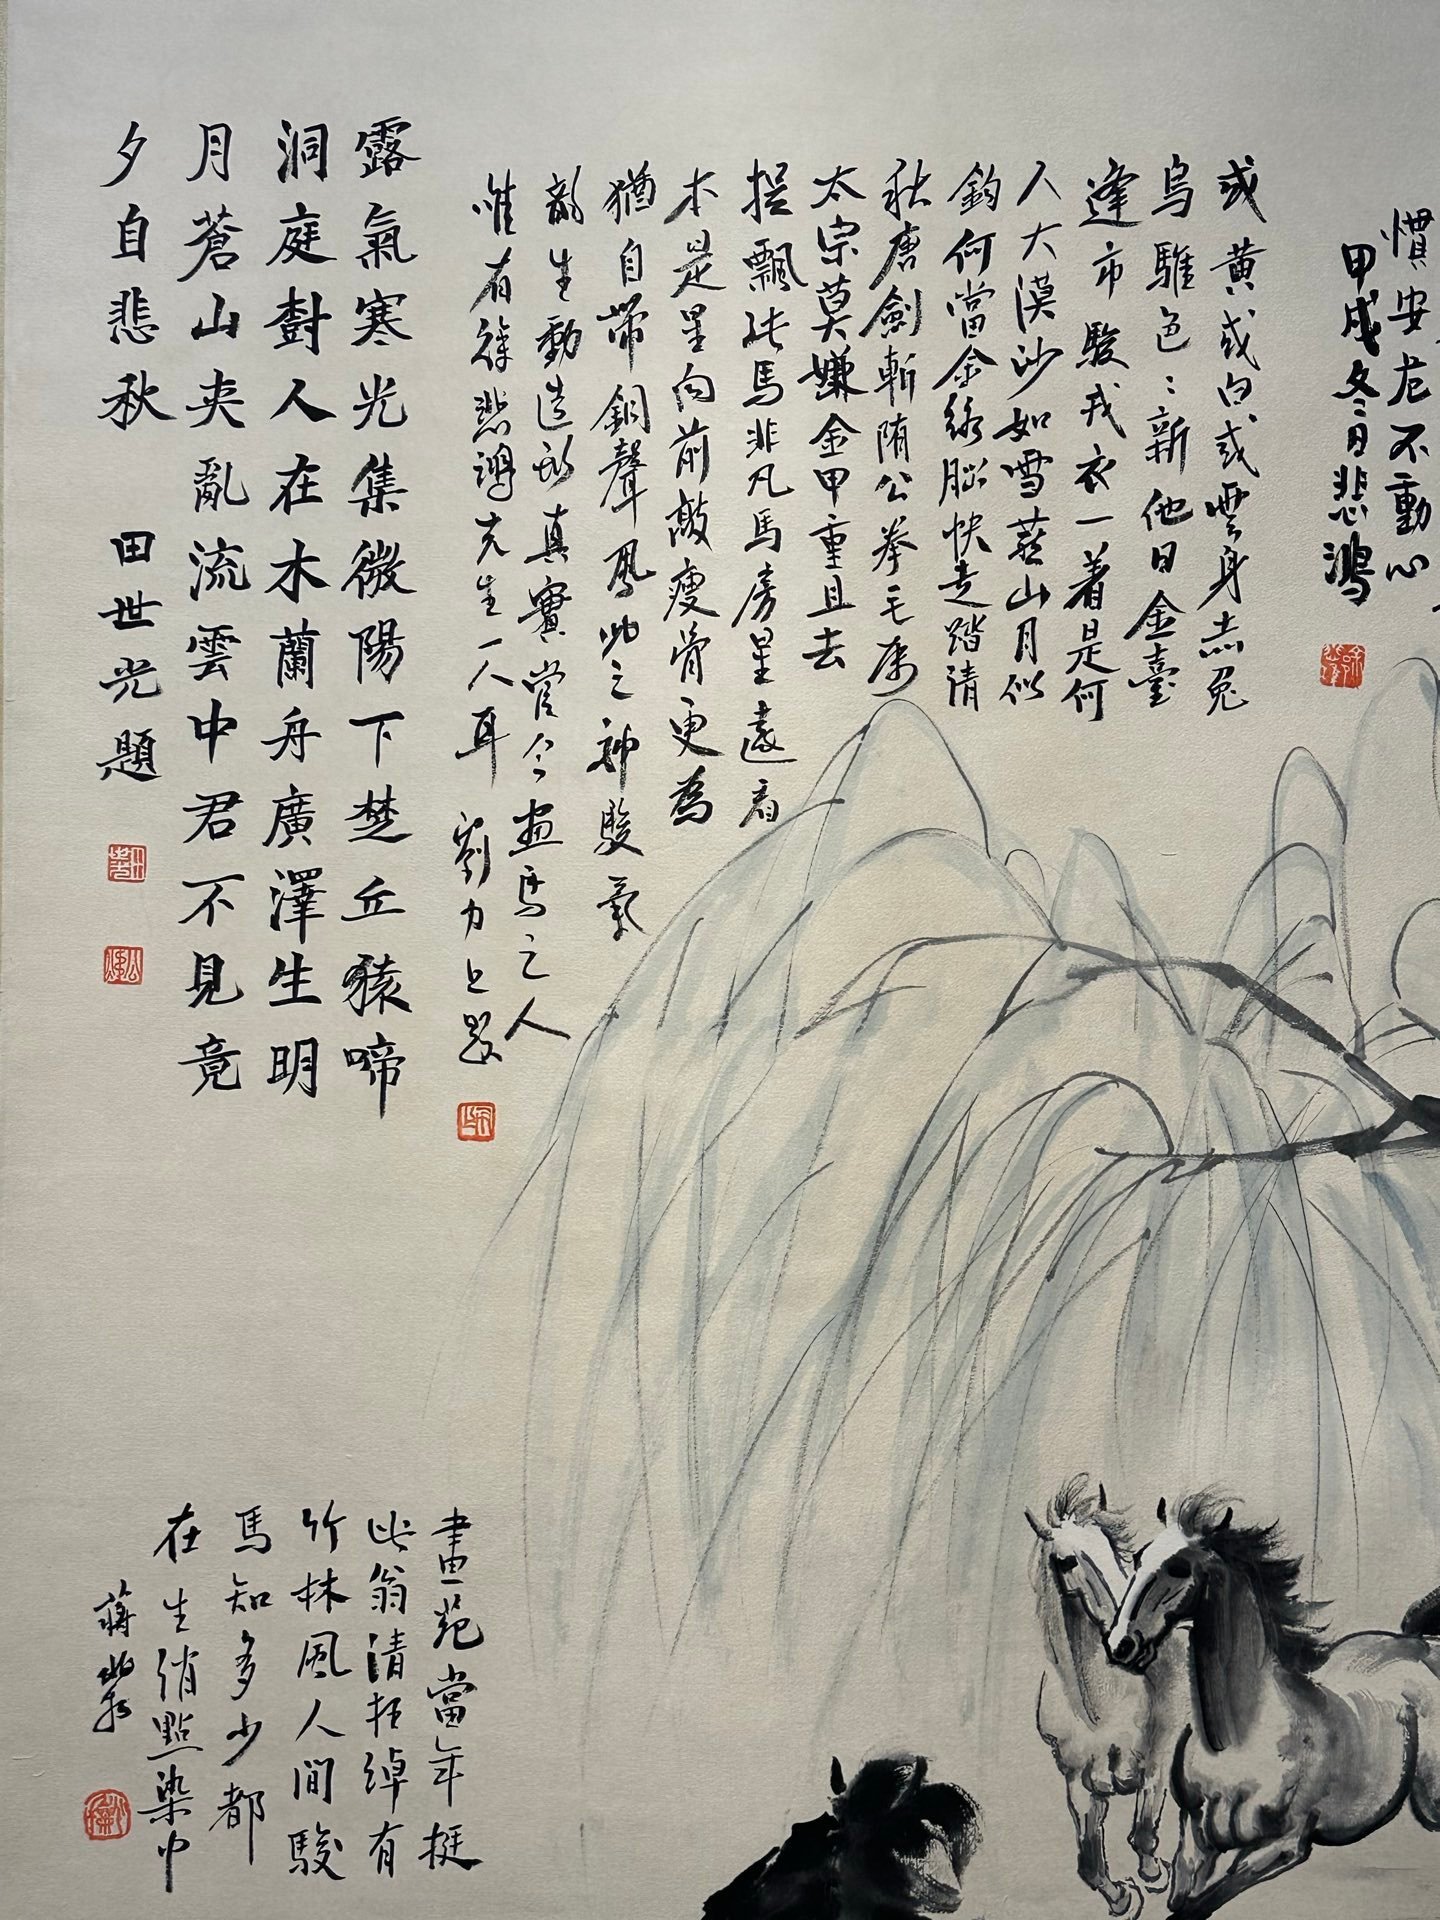 慣安危不動心
甲戌冬日悲鴻
或黃或白或雲身赤兔
烏騅色〻新他日金臺
逢市駿戎衣一着是何
人大漠沙如雪燕山月似
鈎何當金絡腦快走踏清
秋唐劍斬隋公拳毛屬
太宗莫嫌金甲重且去
捉飄𩗗馬非凡馬房星
本是星向前敲瘦骨
猶自帶銅聲
龍生動造形真實當今畫馬之人
唯有徐悲鴻先生一人耳 劉力上題
露氣寒光集微陽下楚丘猿啼
洞庭樹人在木蘭舟廣澤生明
月蒼山夾亂流雲中君不見竟
夕自悲秋 田世光題
畫苑當年挺
此翁清狂綽有
竹林風人間駿
馬知多少都
在生綃點染中
蔣兆和